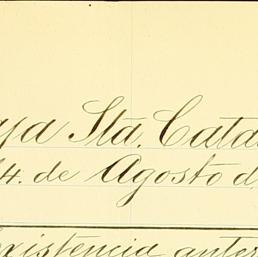 ya Sta. Cata
4. de Agosto d
existencia anter